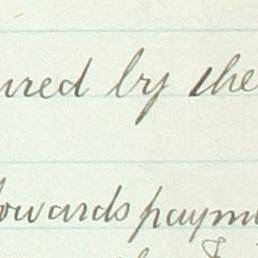 ured by the
towards paym